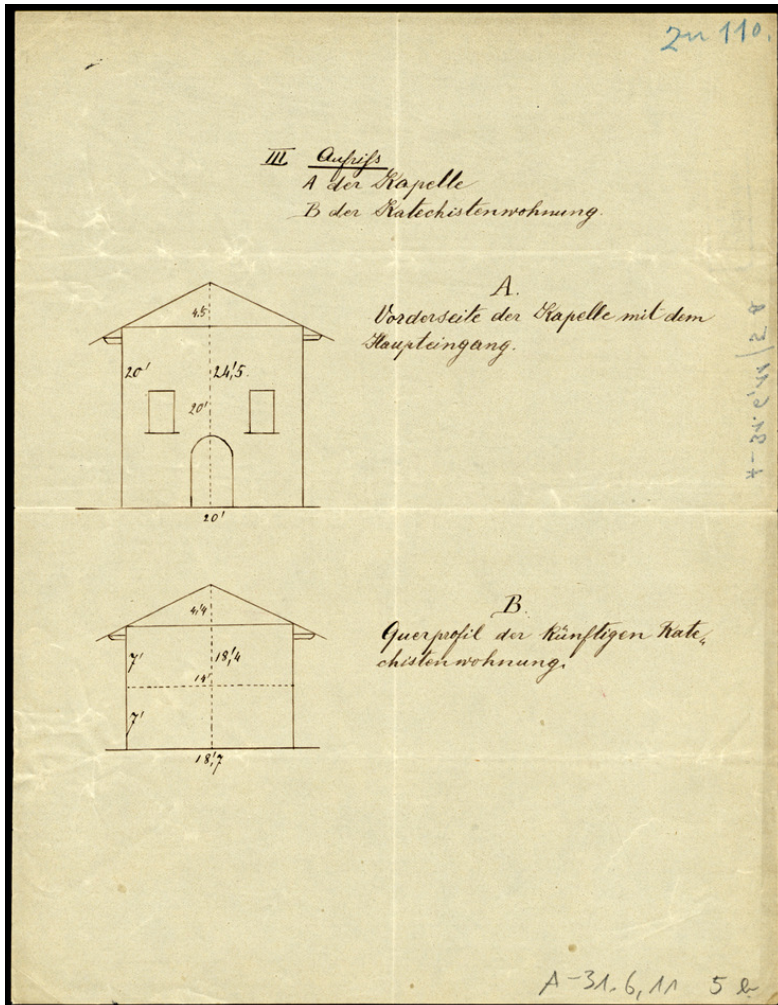 Zu 110.
III Aufriſs
A der Kapelle
B der Katechistenwohnung.
A.
Vorderseite der Kapelle mit dem
Haupteingang.
4.'5
20'
24,'5.
20'
20'
B.
Querprofil der künftigen Kate„
chistenwohnung.
4,'4
7'
18,'4
14'
7'
18,'7
A-31.6,11/5 b
A-31.6,11 5 b